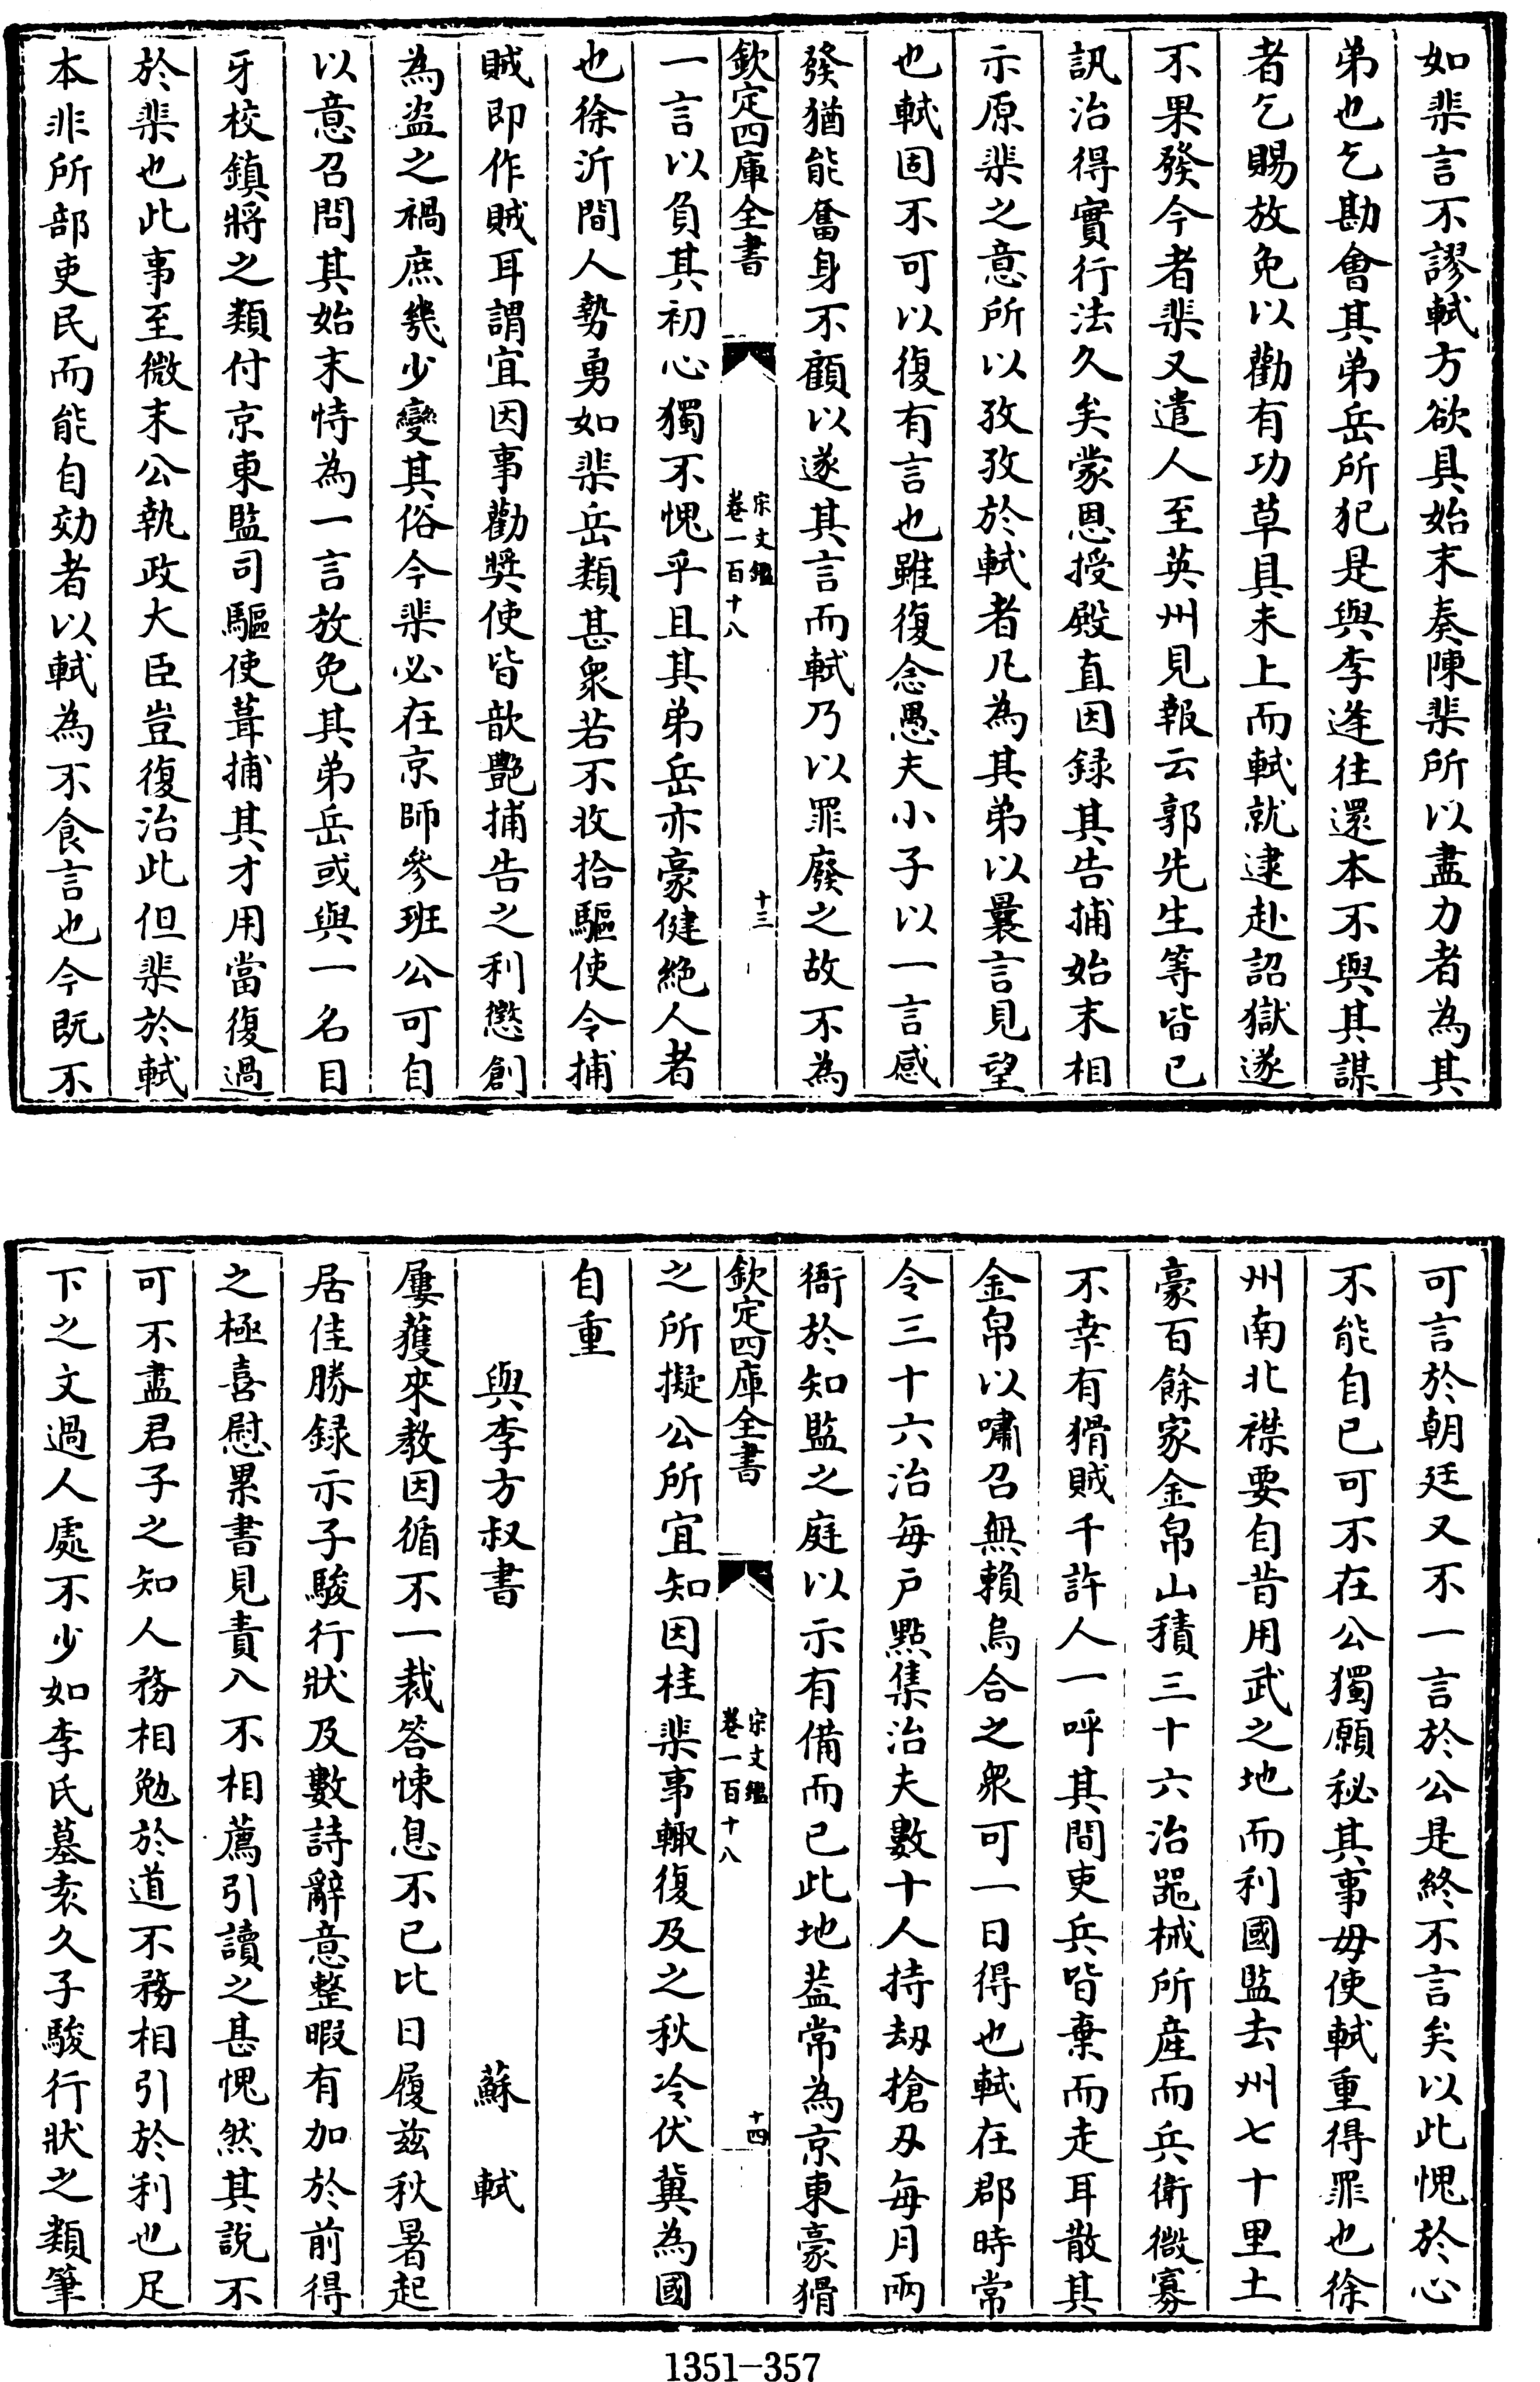 如棐言不謬軾方欲具始末奏陳棐所以盡力者為其
弟也乞勘會其弟岳所犯是與李逢往還本不與其謀
者乞賜放免以勸有功草具未上而軾就逮赴詔獄遂
不果發今者棐又遣人至英州見報云郭先生等皆已
訊治得實行法久矣蒙恩授殿直因録其告捕始末相
示原棐之意所以孜孜於軾者凡為其弟以曩言見望
也軾固不可以復有言也雖復念愚夫小子以一言感
發猶能奮身不顧以遂其言而軾乃以罪廢之故不為
欽定四庫全書
宋文鑑
卷一百十八
十三
一言以負其初心獨不愧乎且其弟岳亦豪健絶人者
也徐沂間人勢勇如棐岳類甚衆若不收拾驅使令捕
賊即作賊耳謂宜因事勸奬使皆歆艷捕告之利懲創
為盜之禍庶幾少變其俗今棐必在京師參班公可自
以意召問其始末恃為一言放免其弟岳或與一名目
牙校鎮將之類付京東監司驅使葺捕其才用當復過
於棐也此事至微末公執政大臣豈復治此但棐於軾
本非所部吏民而能自効者以軾為不食言也今既不
可言於朝廷又不一言於公是終不言矣以此愧於心
不能自已可不在公獨願秘其事毋使軾重得罪也徐
州南北襟要自昔用武之地而利國監去州七十里土
豪百餘家金帛山積三十六治噐械所産而兵衛微寡
不幸有猾賊千許人一呼其間吏兵皆棄而走耳散其
金帛以嘯召無賴烏合之衆可一日得也軾在郡時常
令三十六治每户點集治夫數十人持刼槍刃每月兩
衙於知監之庭以示有備而已此地葢常為京東豪猾
欽定四庫全書
宋文鑑
卷一百十八
十四
之所擬公所宜知因桂棐事輙復及之秋冷伏冀為國
自重
與李方叔書　蘇軾
屢獲來教因循不一裁答悚息不已比日履兹秋暑起
居佳勝録示子駿行狀及數詩辭意整暇有加於前得
之極喜慰累書見責入不相薦引讀之甚愧然其説不
可不盡君子之知人務相勉於道不務相引於利也足
下之文過人處不少如李氏墓表久子駿行狀之類筆
1351-357